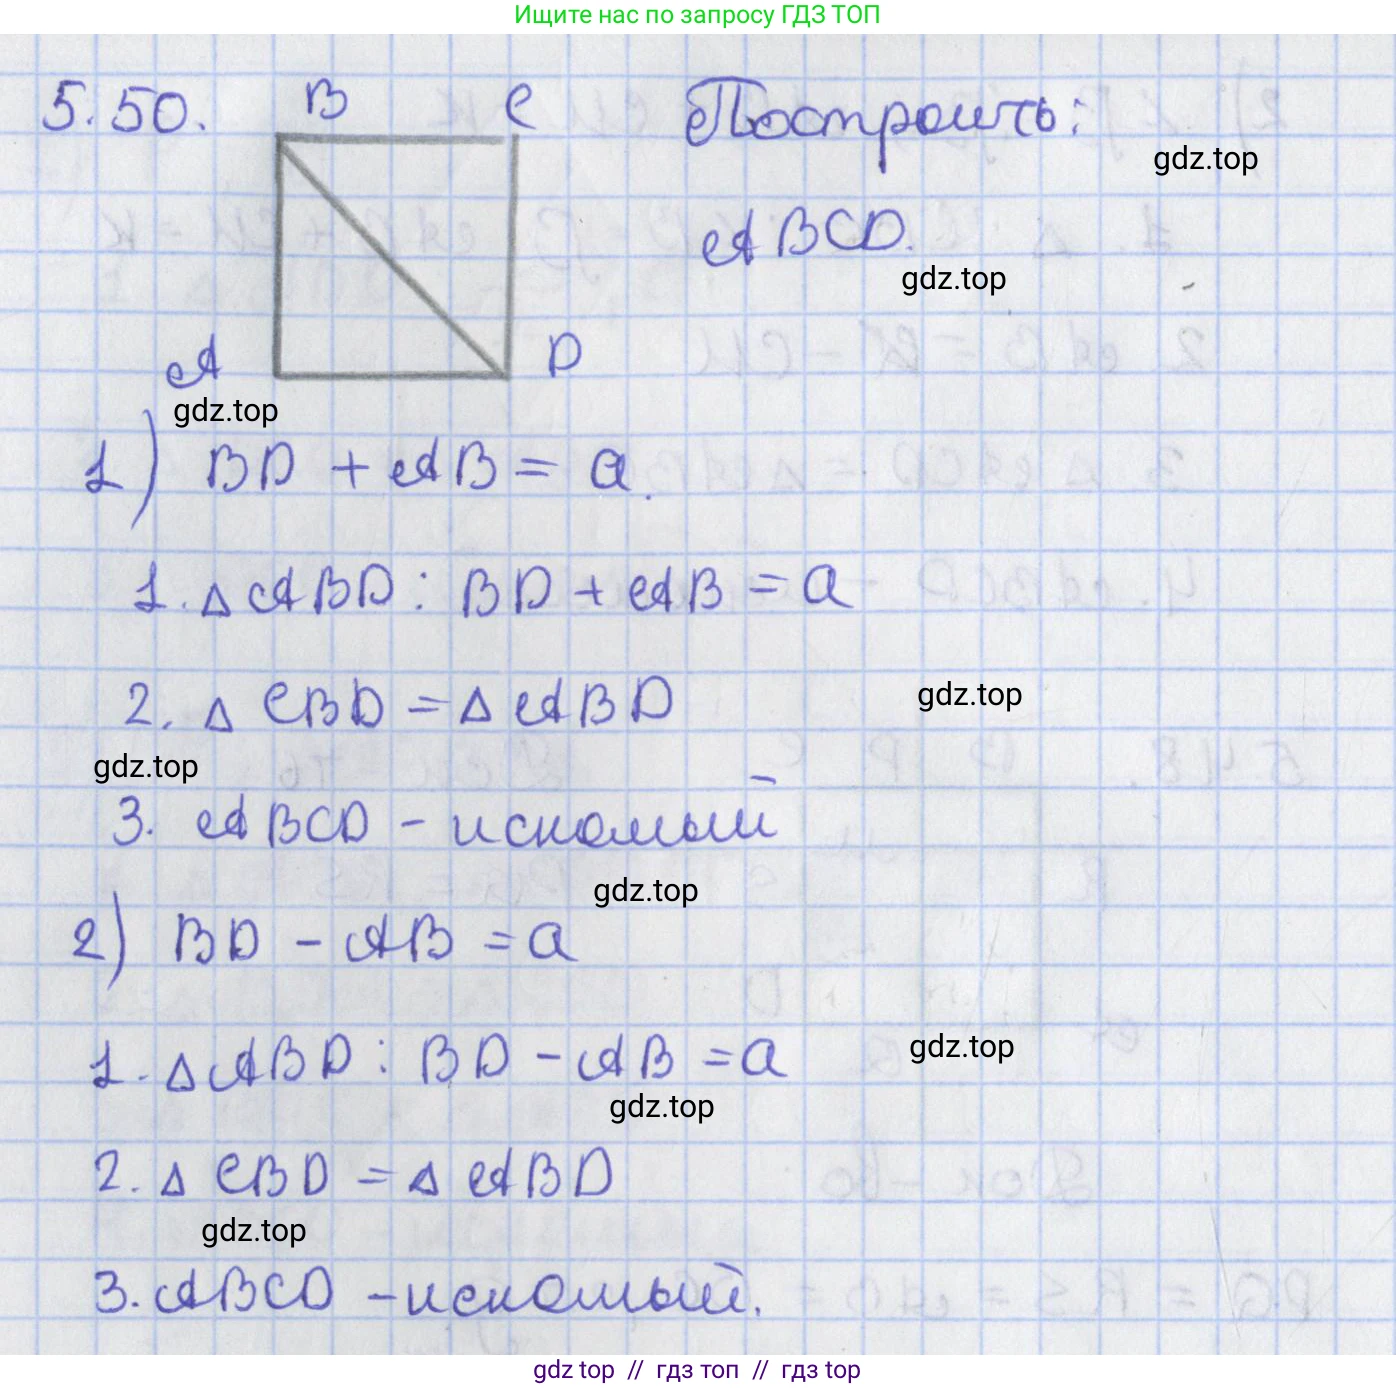 Ищите нас по запросу ГДЗ ТОП
5.50.
B C
Построить:
gdz.top
ABCD.
gdz.top
A D
gdz.top
1) BD + AB = a.
1. △ ABD : BD + AB = a
2. △ CBD = △ ABD
gdz.top
gdz.top
3. ABCD - искомый
gdz.top
2) BD - AB = a
1. △ ABD : BD - AB = a
gdz.top
gdz.top
2. △ CBD = △ ABD
gdz.top
3. ABCD - искомый.
gdz top // гдз топ // гдз top